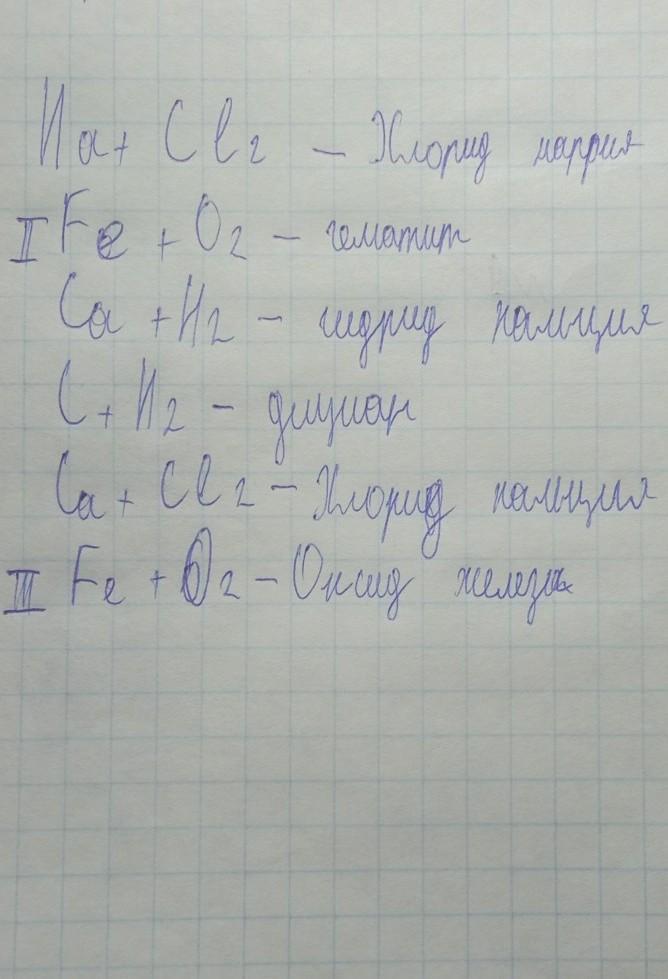 Na + Cl2 – Хлорид натрия
II Fe + O2 – гематит
Ca + H2 – гидрид кальция
C + N2 – дициан
Ca + Cl2 – Хлорид кальция
III Fe + O2 – Оксид железа